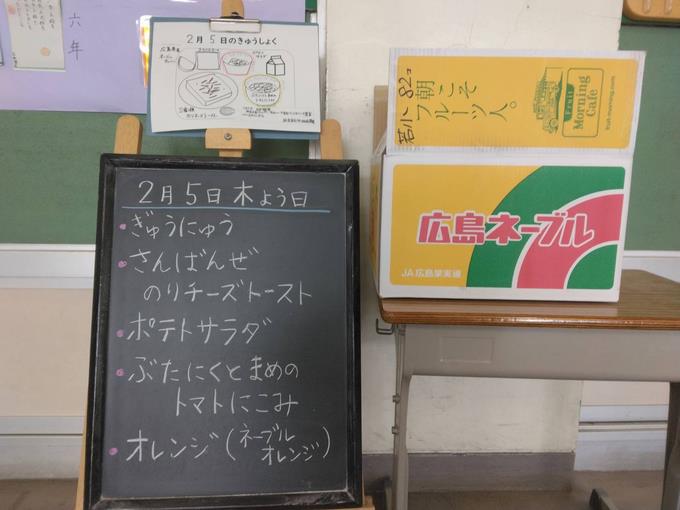 六年
2月5日のきゅうしょく
2月5日木よう日
・ぎゅうにゅう
・さんばんぜ
のりチーズトースト
・ポテトサラダ
・ぶたにくとまめの
トマトにこみ
・オレンジ(ネーブル
オレンジ)
82コ
朝こそ
フルーツ人。
Morning
Cafe
広島ネーブル
JA広島果実連